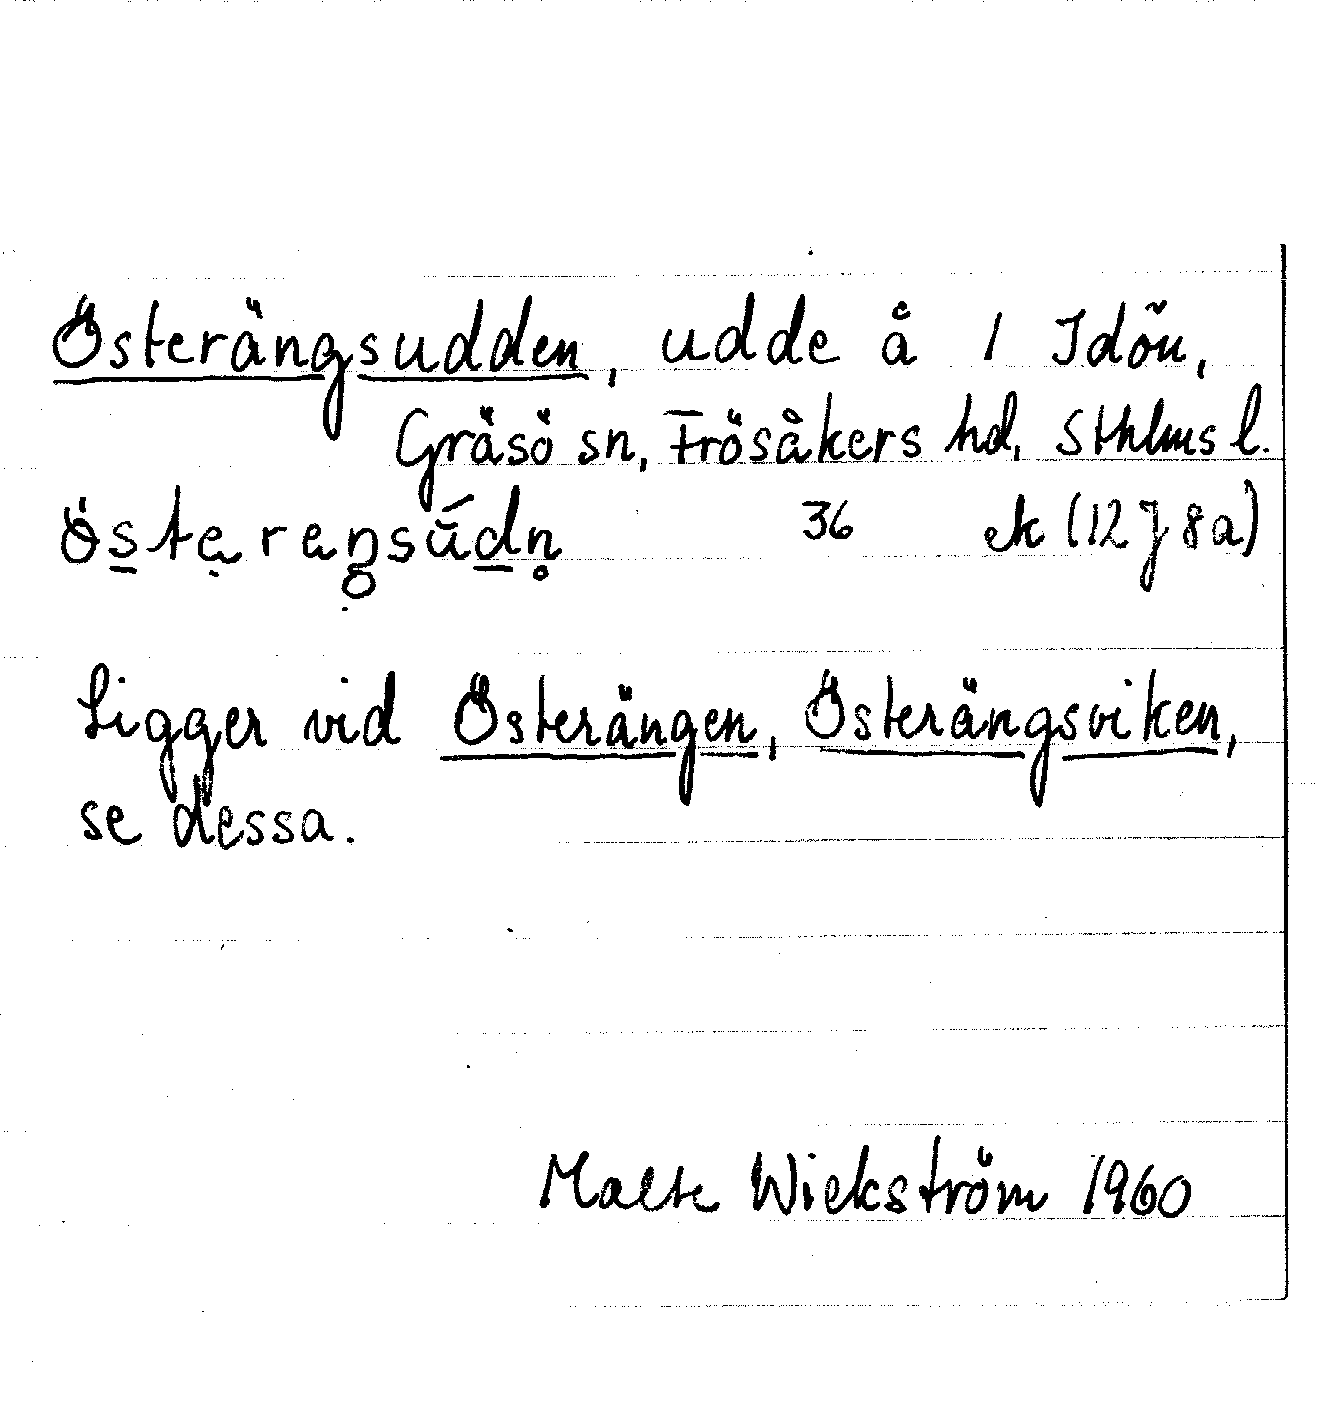 Österängsudden, udde å 1 Idön,
Gräsö sn, Frösåkers hd, Sthlms l.
östərəŋsúdn̥ 36 ek (12 J 8 a)
Ligger vid Österängen, Österängsviken,
se dessa.
Malte Wickström 1960